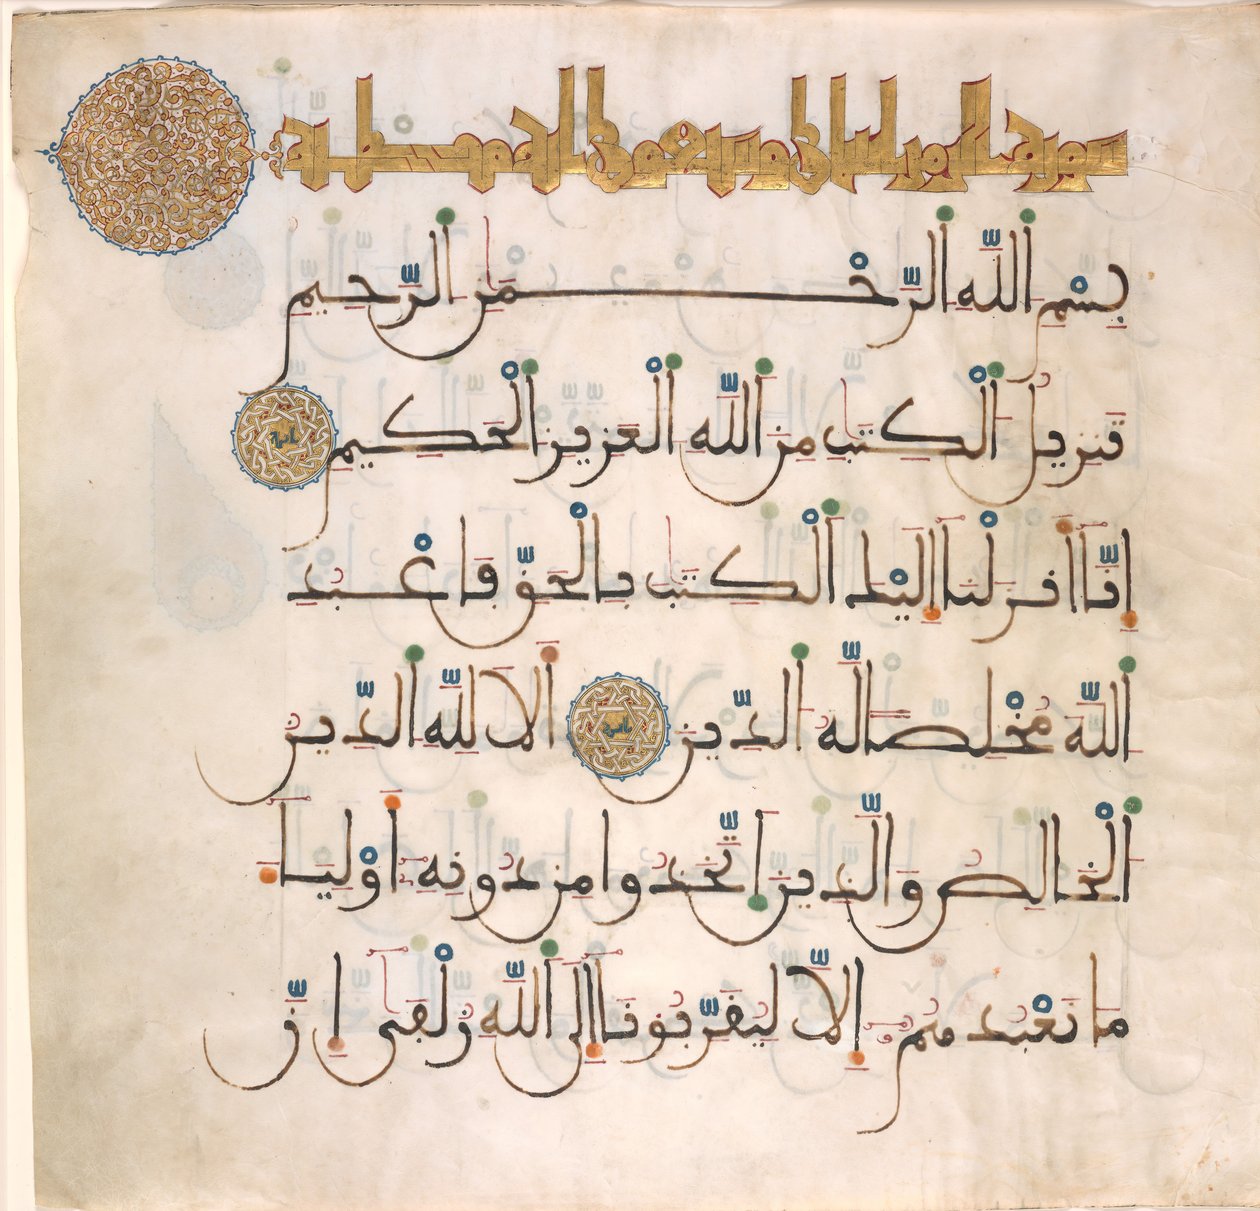 سورة الزمر اثنتان وسبعون اية مكية
بِسْمِ اللَّهِ الرَّحْمَٰنِ الرَّحِيمِ
تَنزِيلُ الْكِتَٰبِ مِنَ اللَّهِ الْعَزِيزِ الْحَكِيمِ اية
إِنَّا أَنزَلْنَا إِلَيْكَ الْكِتَٰبَ بِالْحَقِّ فَاعْبُدِ
اللَّهَ مُخْلِصًا لَهُ الدِّينَ اية أَلَا لِلَّهِ الدِّينُ
الْخَالِصُ وَالَّذِينَ اتَّخَذُوا مِن دُونِهِ أَوْلِيَاءَ
مَا نَعْبُدُهُمُ إِلَّا لِيُقَرِّبُونَا إِلَى اللَّهِ زُلْفَىٰ إِنَّ